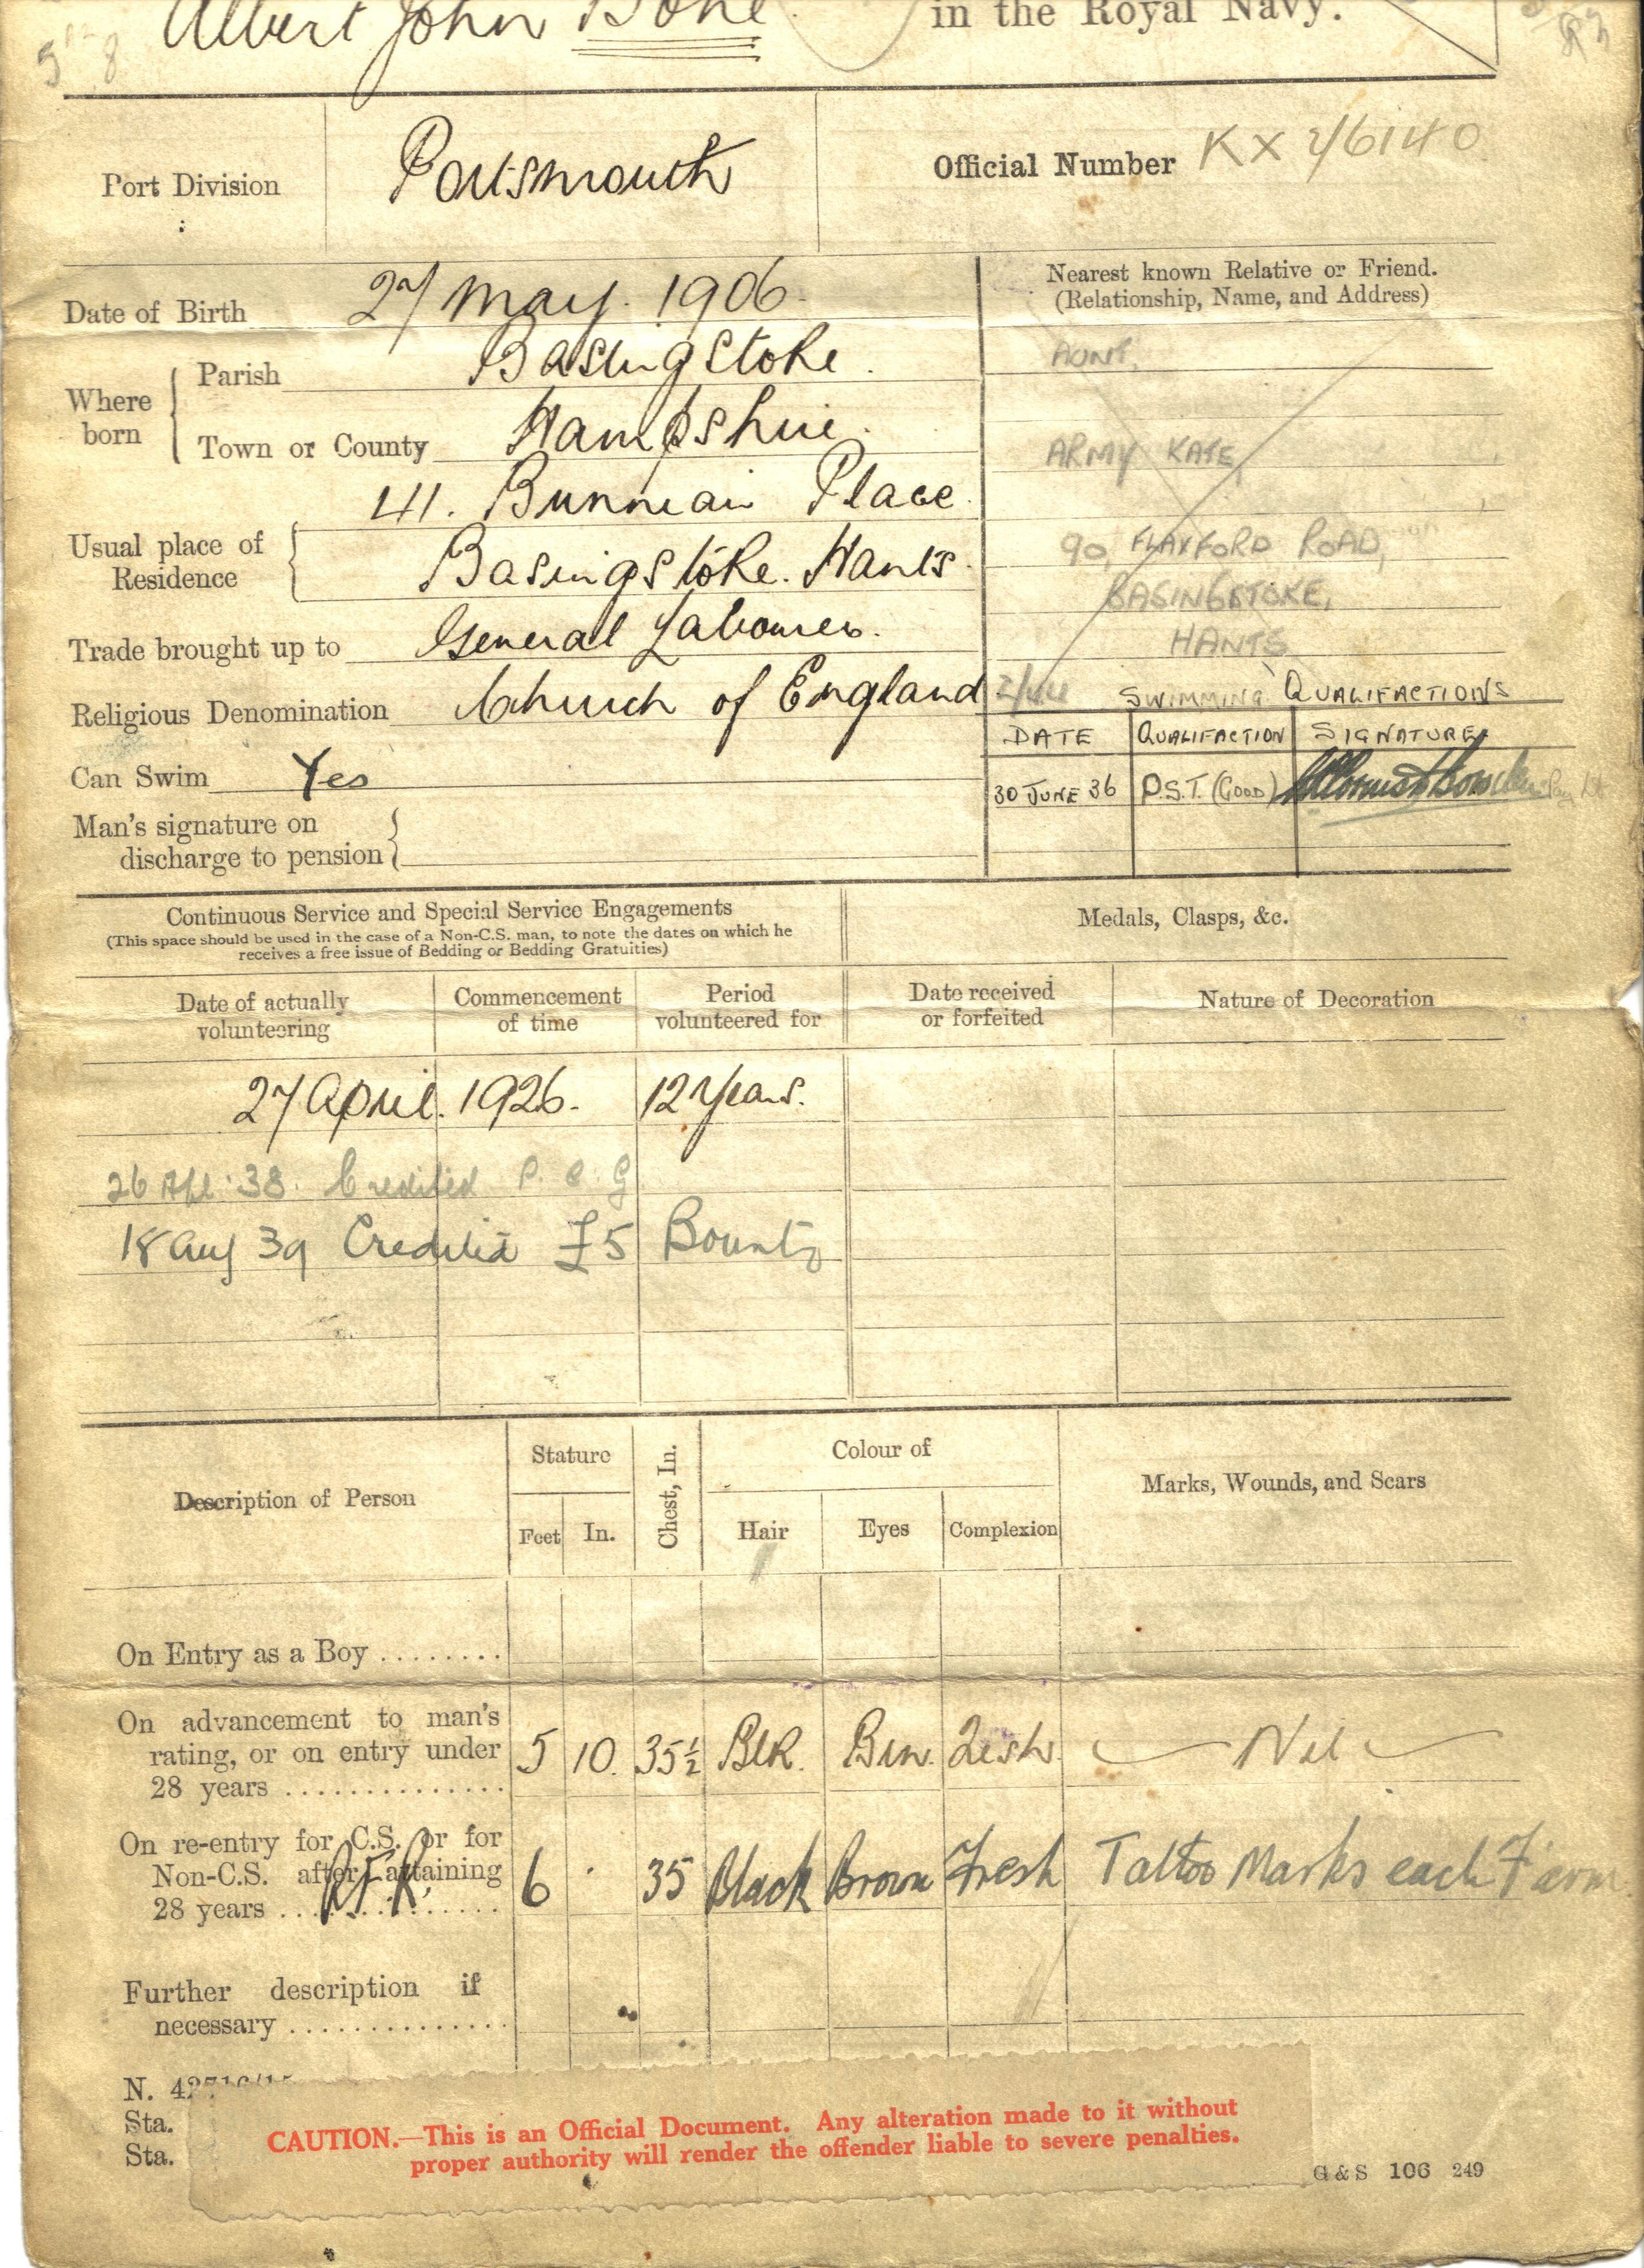 Albert John Bone in the Royal Navy.
Port Division Portsmouth Official Number KX
Date of Birth 27 May. 1906
Nearest known Relative or Friend.
(Relationship, Name, and Address)
Where born Parish Basingstoke.
AUNT,
Town or County Hampshire.
ARMY KATE,
Usual place of Residence 41. Place
Basingstoke. Hants.
90, ROAD,
BASINGSTOKE,
HANTS
Trade brought up to General Labourer.
Religious Denomination Church of England
SWIMMING QUALIFACTIONS
DATE QUALIFACTION SIGNATURE
Can Swim Yes
30 JUNE 36 P.S.T. (GOOD)
Man's signature on
discharge to pension
Continuous Service and Special Service Engagements
(This space should be used in the case of a Non-C.S. man, to note the dates on which he
receives a free issue of Bedding or Bedding Gratuities)
Medals, Clasps, &c.
Date of actually volunteering
Commencement of time
Period volunteered for
Date received or forfeited
Nature of Decoration
27 April. 1926. 12 Years.
26 Apl. 38. Credited
18 Aug 39 Credited £5 Bounty
Description of Person
Stature
Feet In.
Chest, In.
Colour of
Hair Eyes Complexion
Marks, Wounds, and Scars
On Entry as a Boy ........
On advancement to man's
rating, or on entry under
28 years .............. 5 10. 35½ Blk. Brn. Nil
On re-entry for C.S. or for
Non-C.S. after attaining
28 years .............. 6 . 35 Black Brown Fresh Tattoo Marks each F'arm
R.F.R.
Further description if
necessary ..............
N.
Sta.
Sta.
CAUTION.—This is an Official Document. Any alteration made to it without
proper authority will render the offender liable to severe penalties.
G & S 106 249